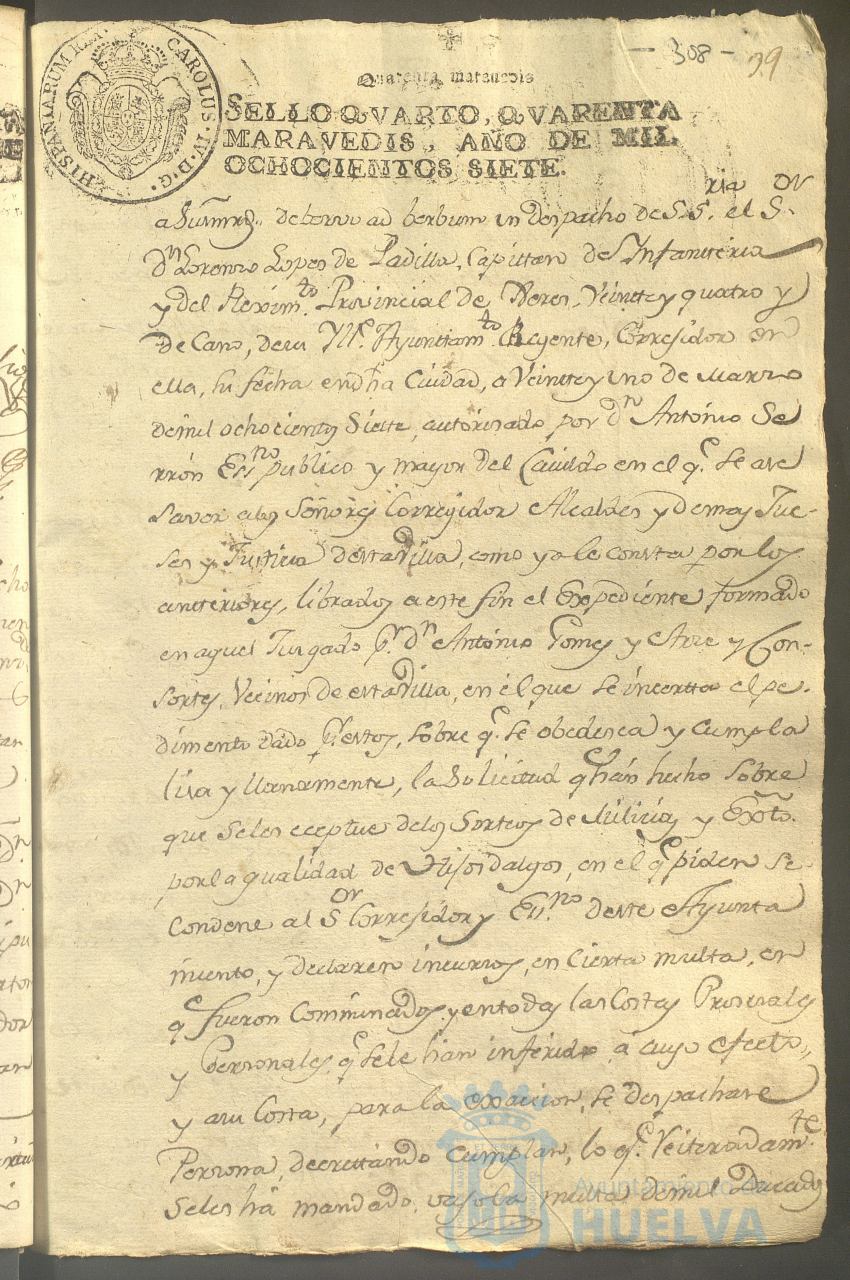 - 308 - 39
Quarenta maravedis
HISPANIARUM REX CAROLUS·IV·D·G·
SELLO QVARTO, QVARENTA
MARAVEDIS, AÑO DE MIL
OCHOCIENTOS SIETE.
de bervo ad berbum un despacho de S.S.ria el S.or
Dn Lorenzo Lopes de Padilla, Capittan de Infantteria
y del Reximto Provincial de Xeres, Veintey quatro y
de Cano, de su Ylle Ayunttamto Regente, Corregidor en
ella, su fecha en dha Ciudad, a Veintey uno de Marzo
demil ochocientos Siette, autorisado por dn Antonio Se
rrón Essno publico y mayor del Cavildo en el qe se ase
Saver alos Señores Corregidor Alcaldes y Demas Jue-
ses y Justicia de esta Villa, como ya le consta por los
antteriores, librados a este fin el Expediente formado
en aquel Jusgado pr dn Antonio Gomes y Arze y Con-
sortes, Vecinos de esta Villa, en el que se incertta el pe-
dimento dado pr estos, sobre qe se obedesca y cumpla
lisa y llanamente, la Solicitud qe han hecho sobre
que Seles eceptue delos Sorteos de Milicias y Exto.
por la qualidad de Hijosdalgos, en el qe piden se
Condene al Sor Corregidor y Essno deste Ayunta
miento, y declaren incursos, en Cierta multa, en
qe fueron Comminados y en todas las Costas Prosesales
y Personales qe sele han inferido a cuyo efecto,,
y asu Costa, para la exaccion, se despachase
Persona, decrettando Cumplan, lo qe Reiteradamte
Seles há mandado, vajo la multa demil Ducados
Ayuntamiento de
HUELVA